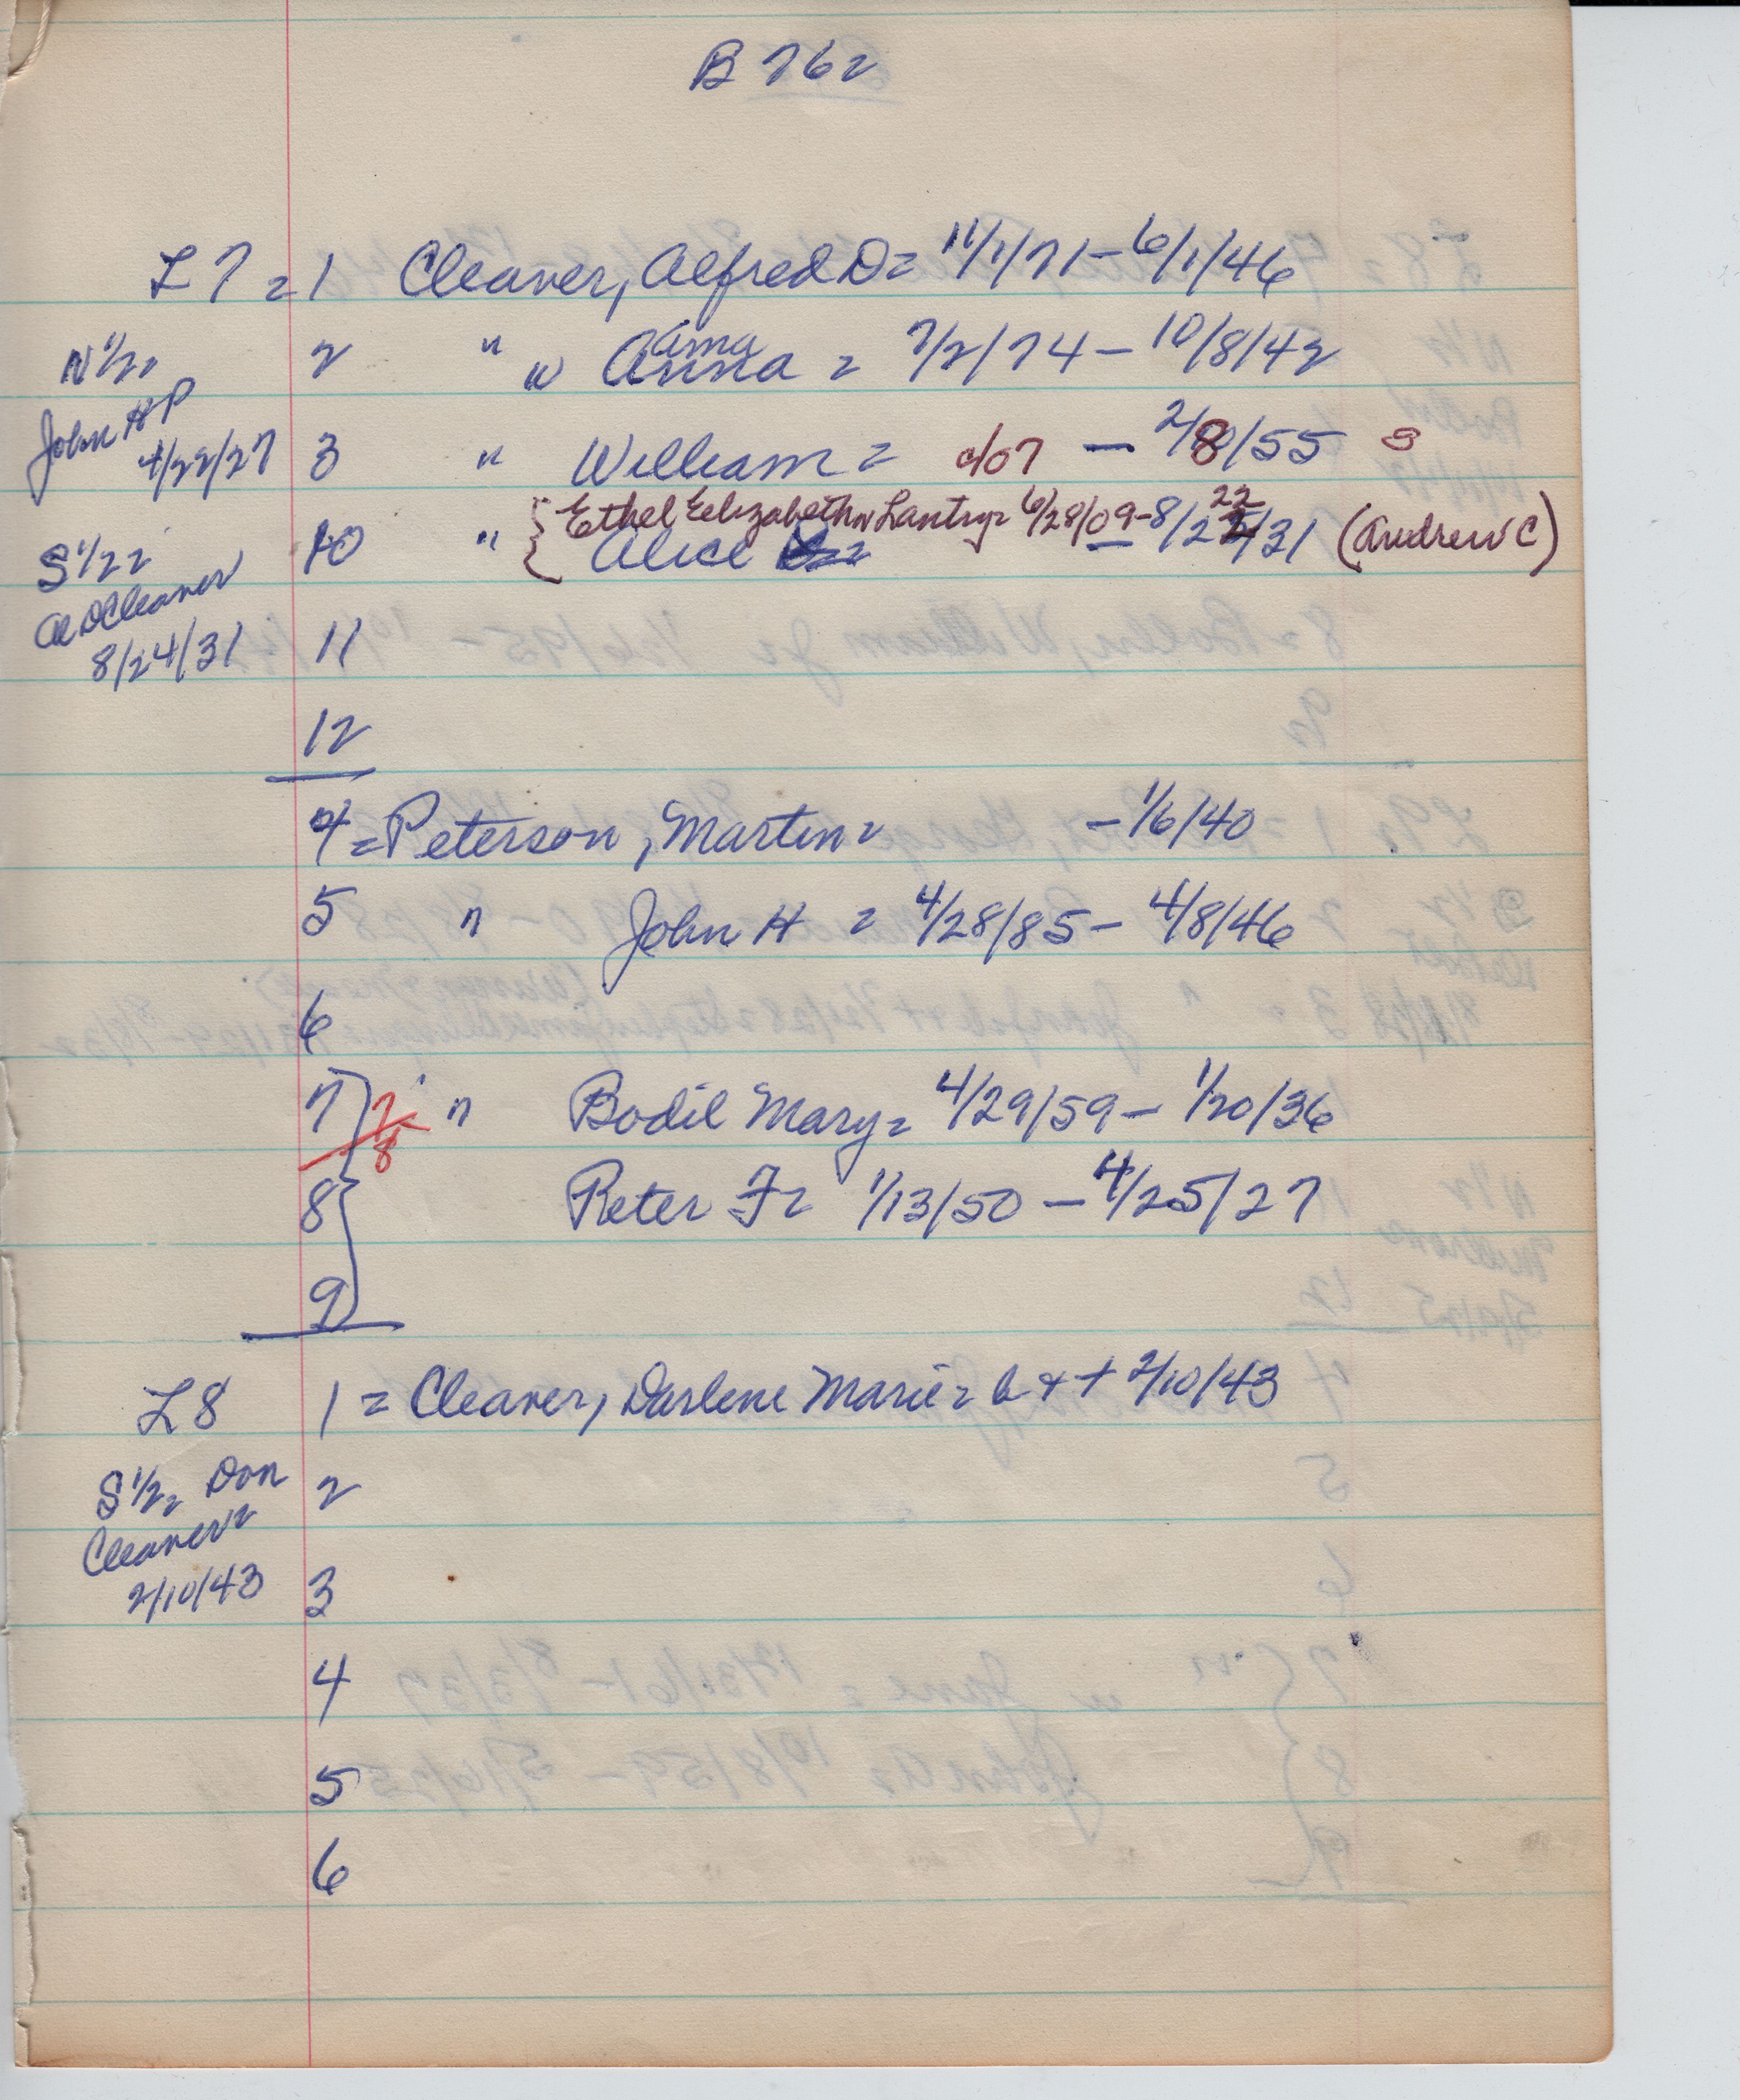 B 76=
L7 = 1 Cleaver, Alfred D = 11/1/71 - 6/1/46
N 1/2= 2 " w Anna ama = 7/2/74 - 10/8/42
John H P
4/22/27 3 " William = c/07 - 2/8/55 s
Ethel Elizabeth w Lantry = 6/28/09 - 8/22/31 (Andrew C)
S 1/2 = 10 " { Alice
A D Cleaver
8/24/31 11
12
4 = Peterson, Martin = - 1/6/40
5 " John H = 4/28/85 - 4/8/46
6
7 7/8 " Bodil Mary = 4/29/59 - 1/20/36
8 Peter F = 1/13/50 - 4/25/27
9
L8 1 = Cleaver, Darlene Marie = b + † 2/10/43
S 1/2= Don 2
Cleaver =
2/10/43 3
4
5
6